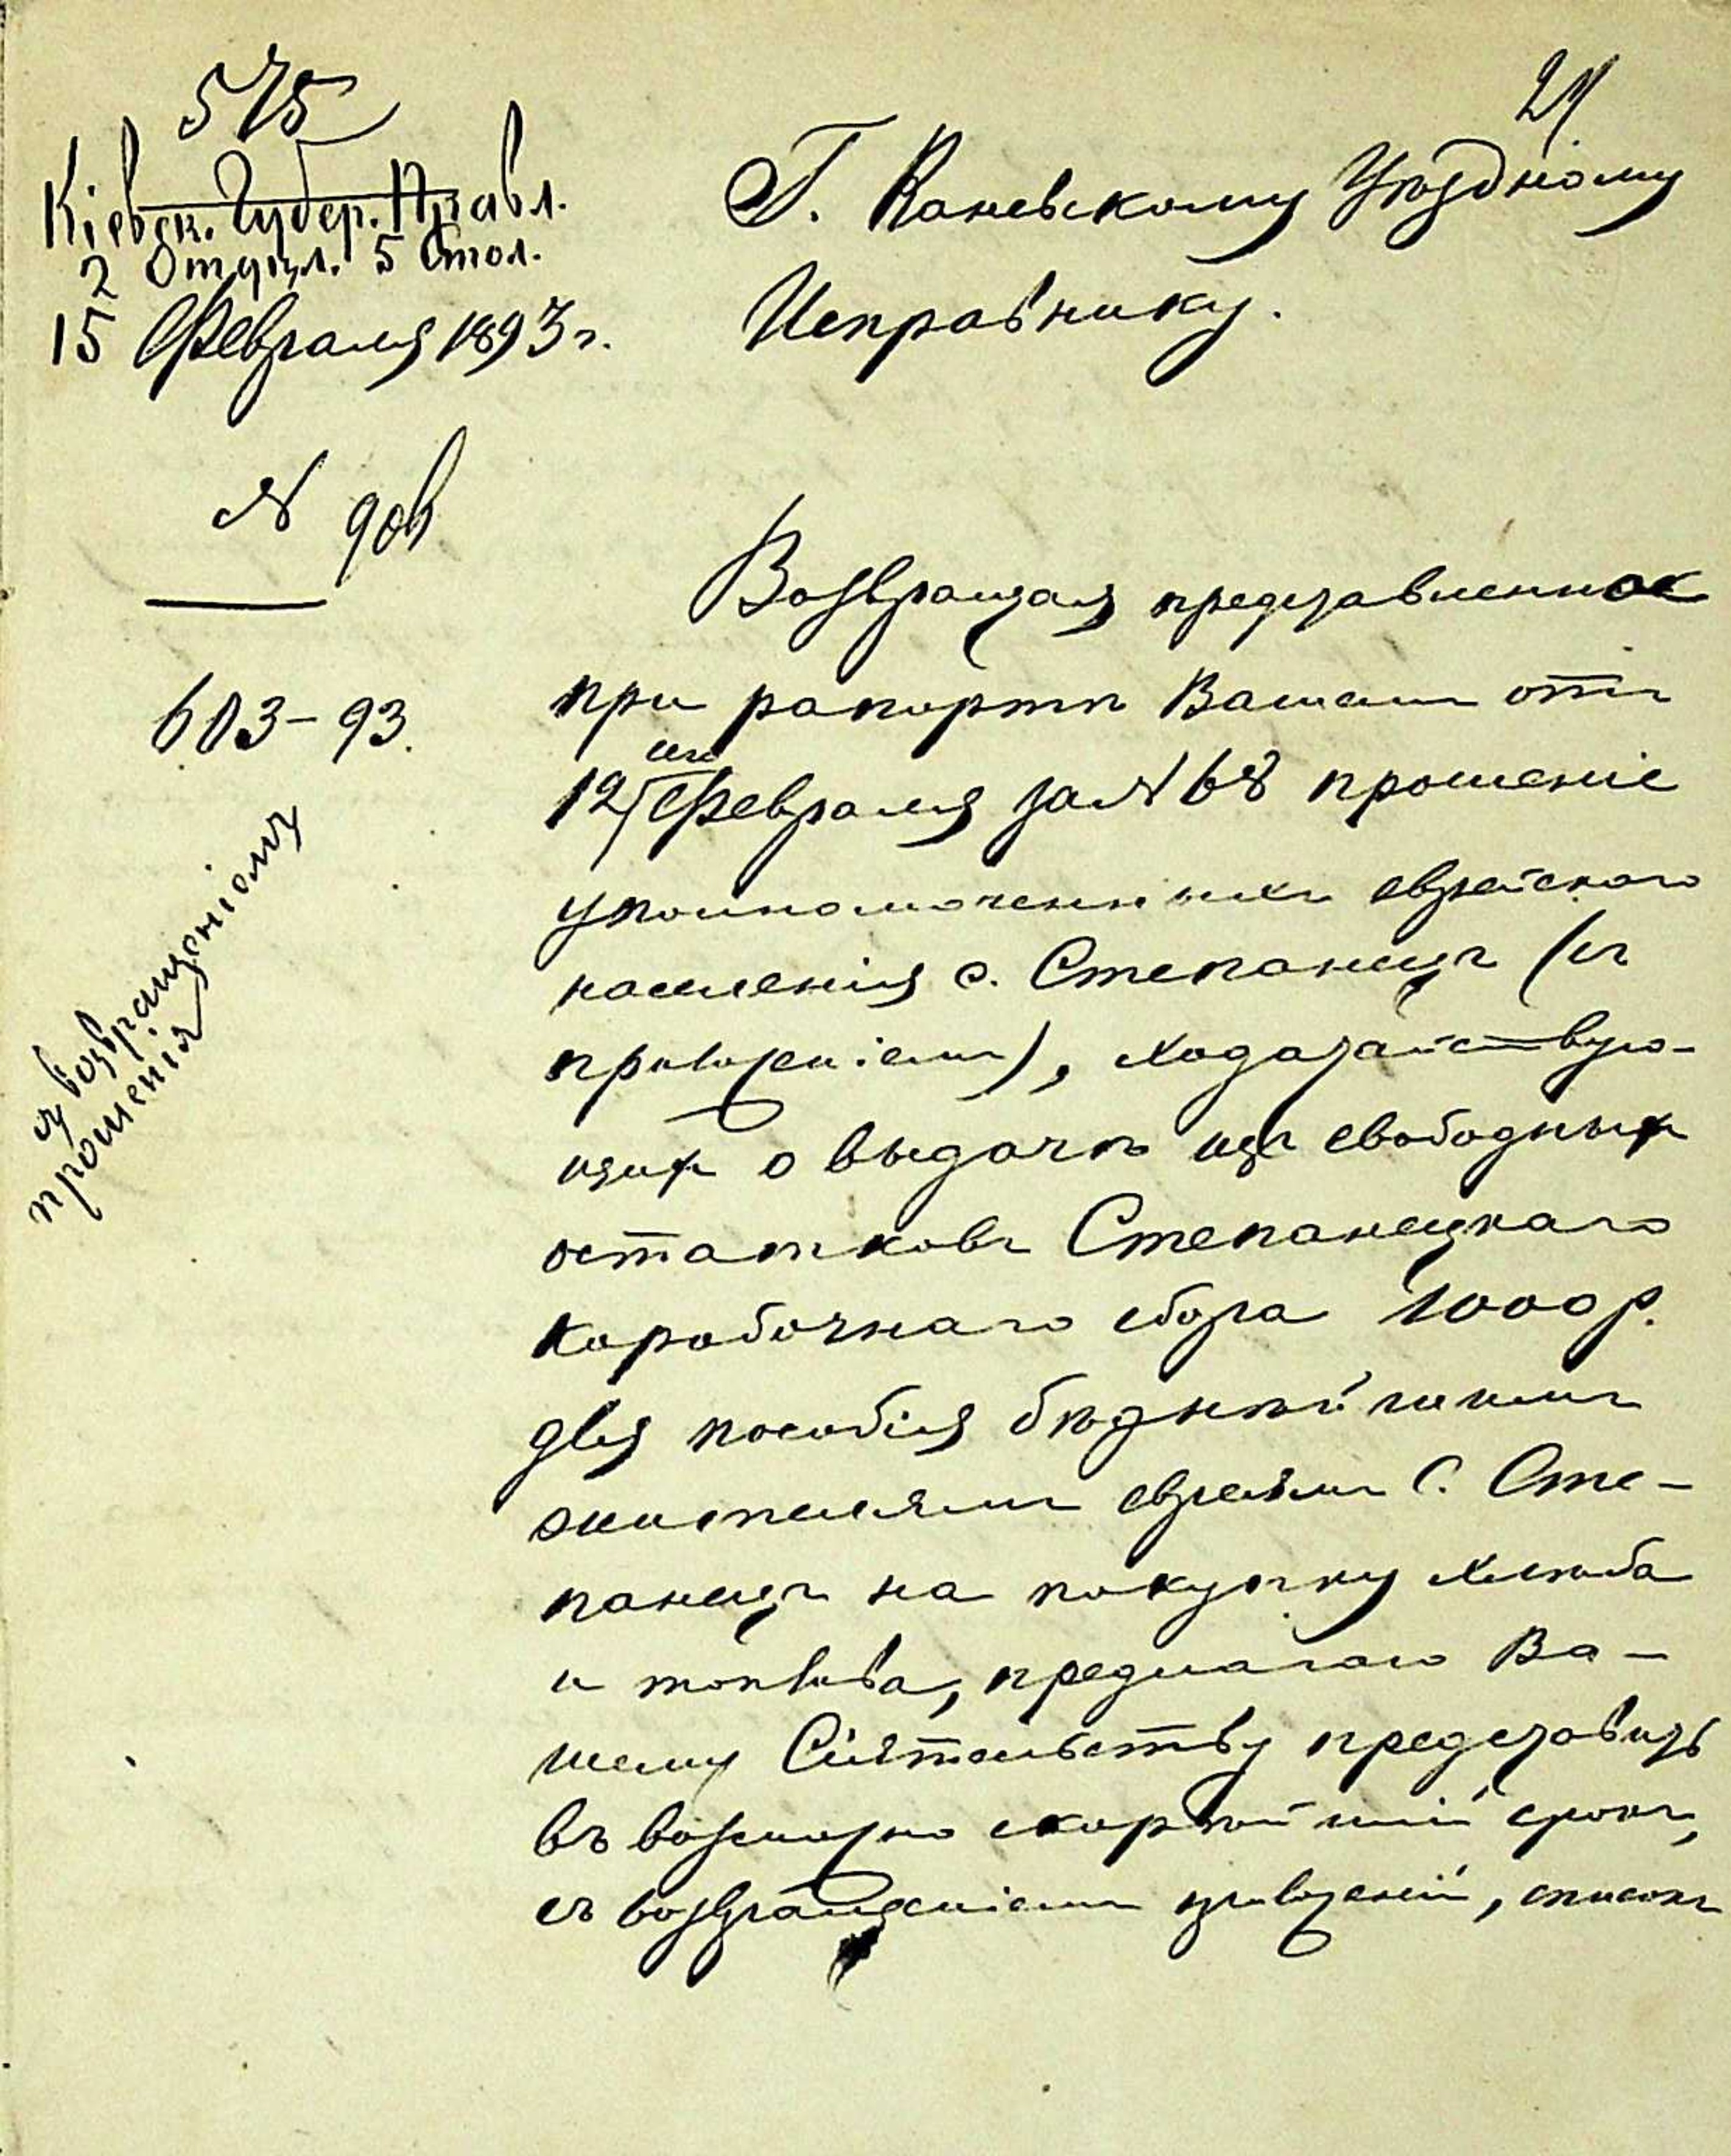 575
24
Кіевск. Губер. Правл.
2 Отдѣл. 5 Стол.
15 Февраля 1893 г.
№
603-93.
съ возвращеніемъ
прошенія
Г. Каневскому Уѣздному
Исправнику.
Возвращая представленное
при рапортѣ Вашемъ отъ
12 сего Февраля за № 68 прошеніе
уполномоченныхъ еврейскаго
населенія с. Степанецъ (съ
приложеніемъ), ходатайствую-
щихъ о выдачѣ изъ свободныхъ
остатковъ Степанецкаго
коробочнаго сбора 1000 р.
для пособія бѣднѣйшимъ
жителямъ евреямъ с. Сте-
панецъ на покупку хлѣба
и топлива, предлагаю Ва-
шему Сіятельству представить
въ возможно скорѣйшій срокъ,
съ возвращеніемъ приложеній, списокъ